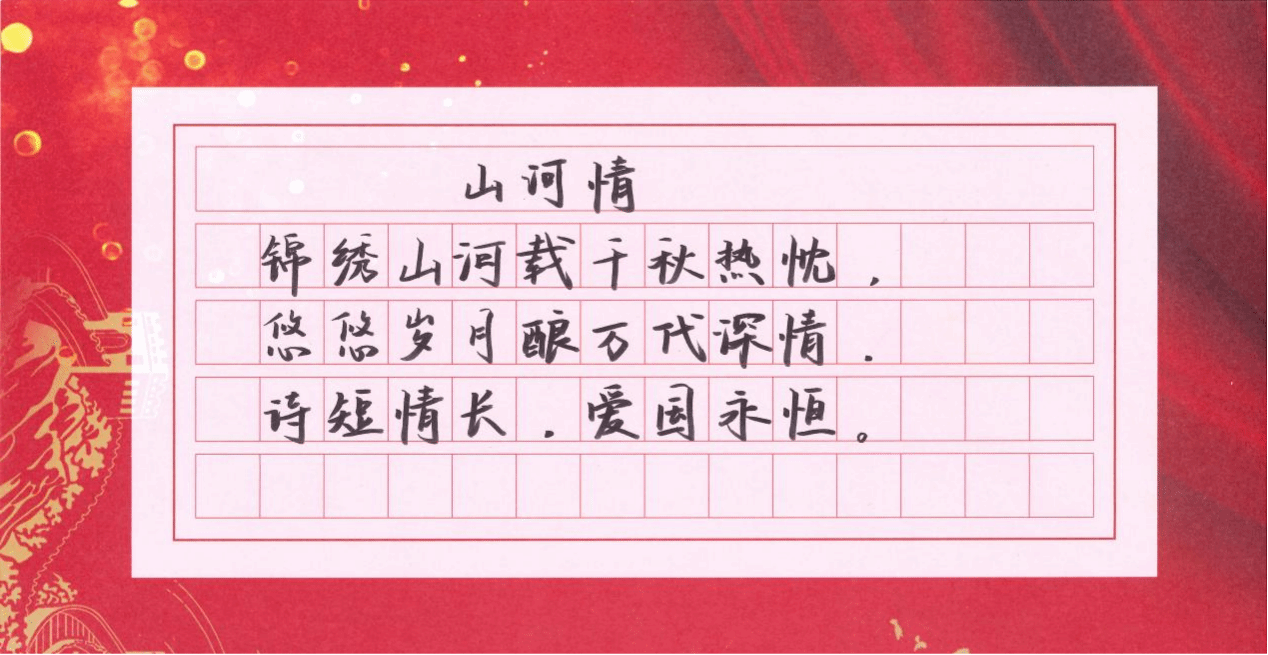 山河情
锦绣山河载千秋热忱，
悠悠岁月酿万代深情．
诗短情长．爱国永恒。